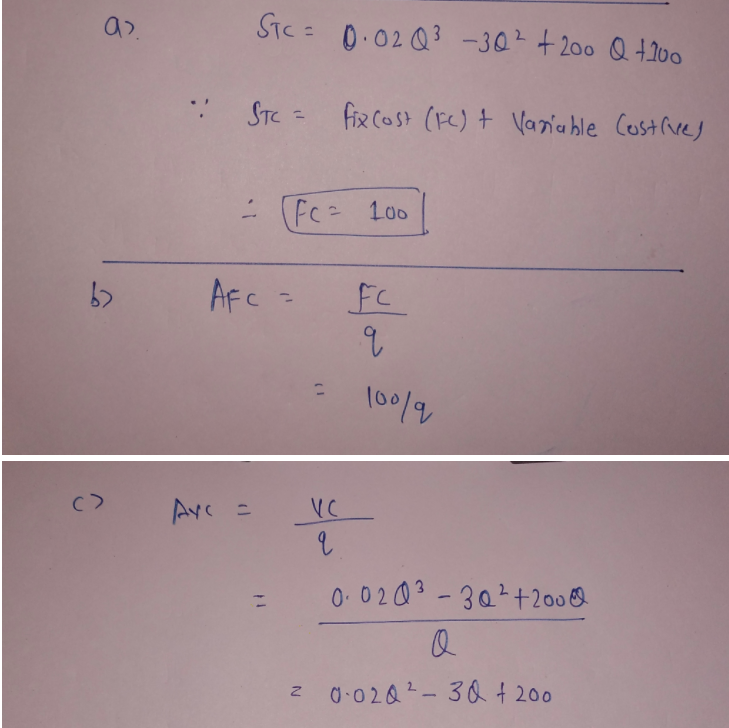 a). STC = 0.02Q³ - 3Q² + 200Q + 100
∵ STC = fix Cost (FC) + Variable Cost (VC)
∴ FC = 100
b) AFC = FC/q
= 100/q
c) AVC = VC/q
= 0.02Q³ - 3Q² + 200Q / Q
= 0.02Q² - 3Q + 200